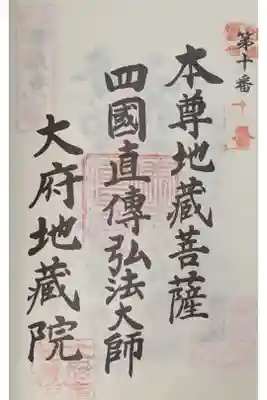 第十番
本尊地蔵菩薩
四國直傳弘法大師
大府地蔵院